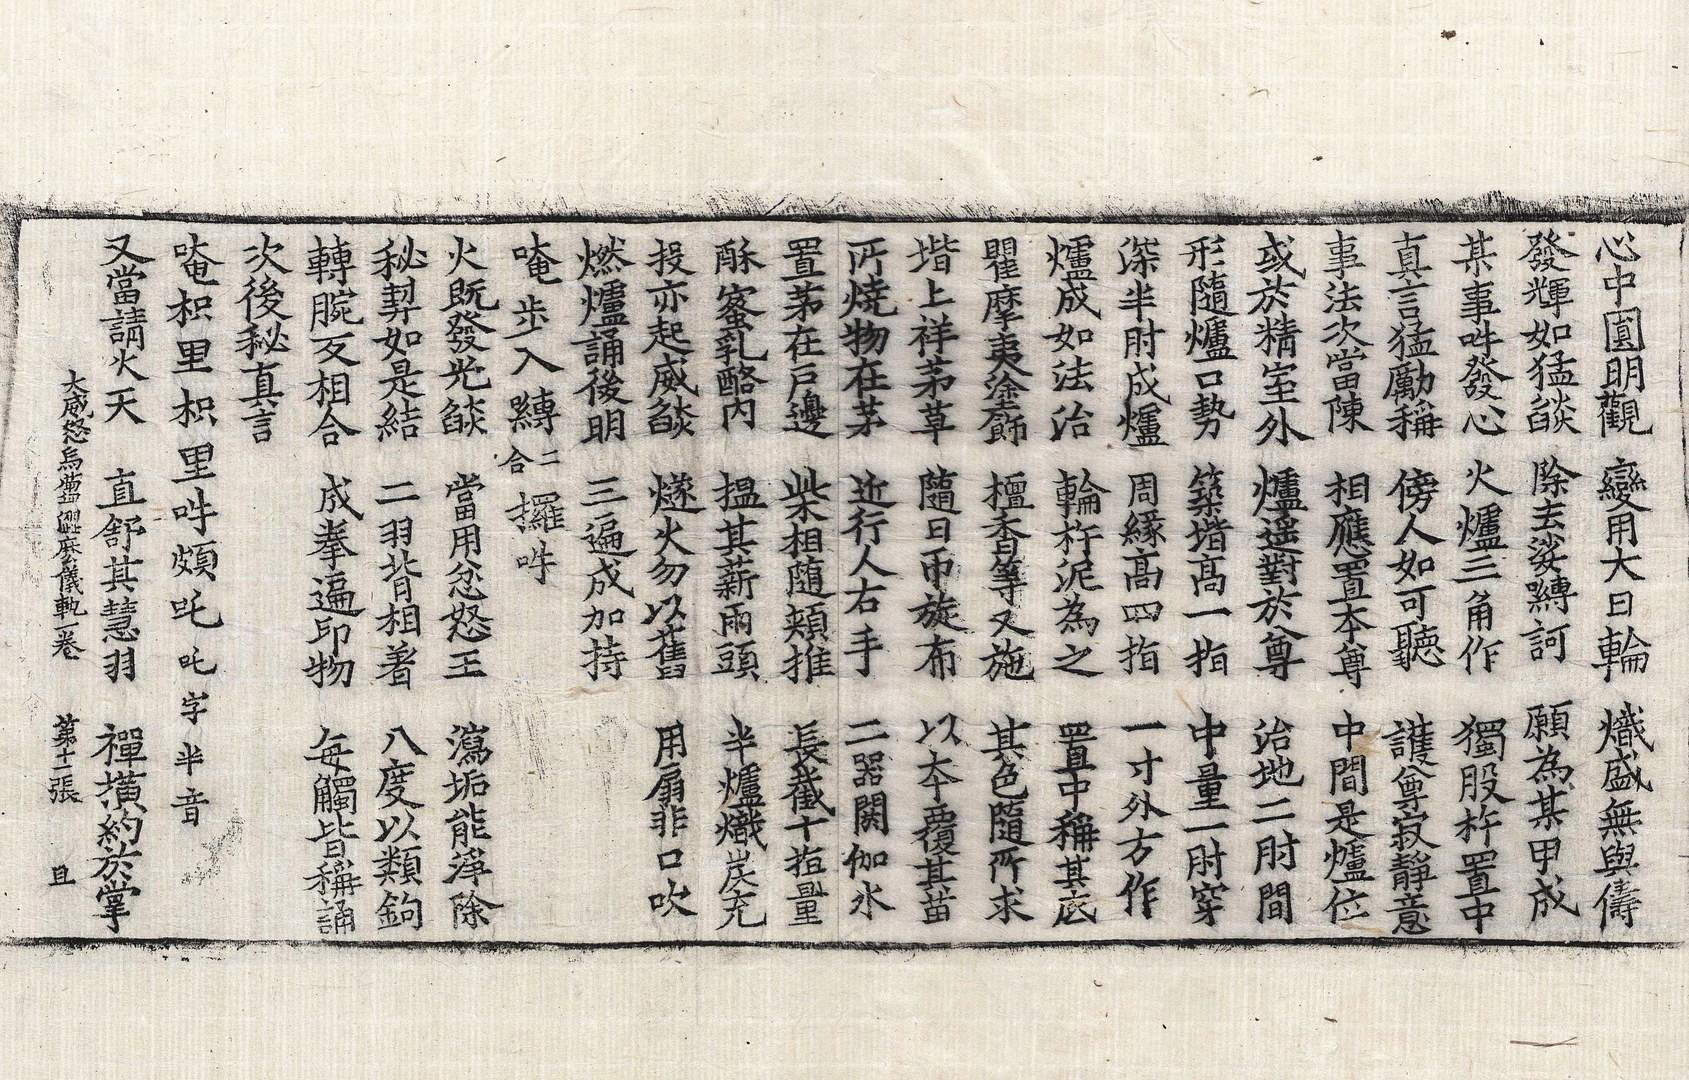 心中圓明觀　變用大日輪　熾盛無與儔
發輝如猛燄　除去娑嚩訶　願為某甲成
某事吽發心　火爐三角作　獨股杵置中
真言猛勵稱　傍人如可聽　護尊寂靜意
事法次當陳　相應置本尊　中間是爐位
或於精室外　爐遥對於尊　治地二肘間
形隨爐口勢　築堦高一指　中量一肘穿
深半肘成爐　周緣高四指　一寸外方作
爐成如法治　輪杵泥為之　置中稱其底
瞿摩夷塗飾　檀香等又施　其色隨所求
堦上祥茅草　隨日帀旋布　以本覆其苗
所燒物在茅　近行人右手　二器閼伽水
置茅在戶邊　柴相随頬推　長截十指量
酥蜜乳酪內　搵其薪兩頭　半爐熾炭充
投亦起威燄　燧火勿以舊　用扇非口吹
燃爐誦後明　三遍成加持
唵步入嚩二合囉吽
火既發光燄　當用忿怒王　瀉垢能淨除
秘契如是結　二羽背相著　八度以類鉤
轉腕反相合　成拳遍印物　每觸皆稱誦
次後秘真言
唵枳里枳里吽頗吒吒字半音
又當請火天　直舒其慧羽　禪撗約於掌
大威怒烏蒭澀麽儀軌一卷　第十二張　且